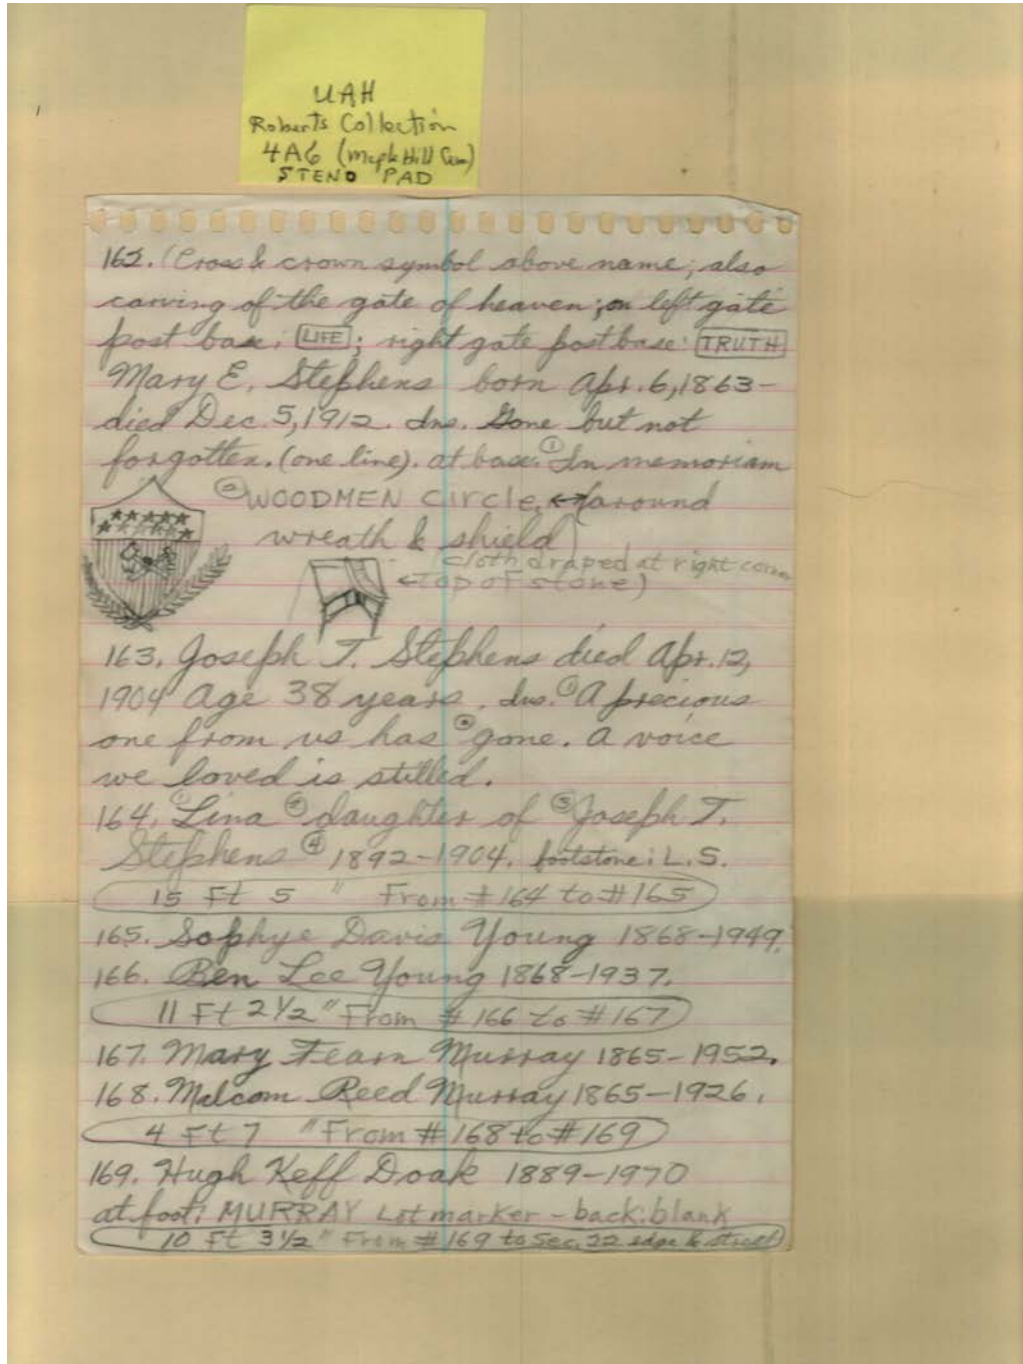 UAH
Roberts Collection
4A6 (Maple Hill Cem)
STENO PAD
162. (Cross & crown symbol above name; also
carving of the gate of heaven; on left gate
post base: LIFE; right gate post base: TRUTH
Mary E. Stephens born Apr. 6, 1863-
died Dec. 5, 1912. Ins. Gone but not
forgotten. (one line). at base: ① In memoriam
② WOODMEN CIrcle, ↔ (around
wreath & shield)
(cloth draped at right corner
← top of stone)
163. Joseph T. Stephens died Apr. 12,
1904 Age 38 years. Ins. ① A precious
one from us has ② gone. A voice
we loved is stilled.
164. ① Lina ② daughter of ③ Joseph T.
Stephens ④ 1892-1904. footstone: L.S.
15 Ft 5 " From #164 to #165
165. Sophye Davis Young 1868-1949.
166. Ben Lee Young 1868-1937.
11 Ft 2 1/2 " From #166 to #167
167. Mary Fearn Murray 1865-1952.
168. Malcom Reed Murray 1865-1926.
4 Ft 7 " From #168 to #169
169. Hugh Keff Doak 1889-1970
at foot: MURRAY Lot marker - back: blank
10 Ft 3 1/2 " From #169 to Sec. 22 edge & street